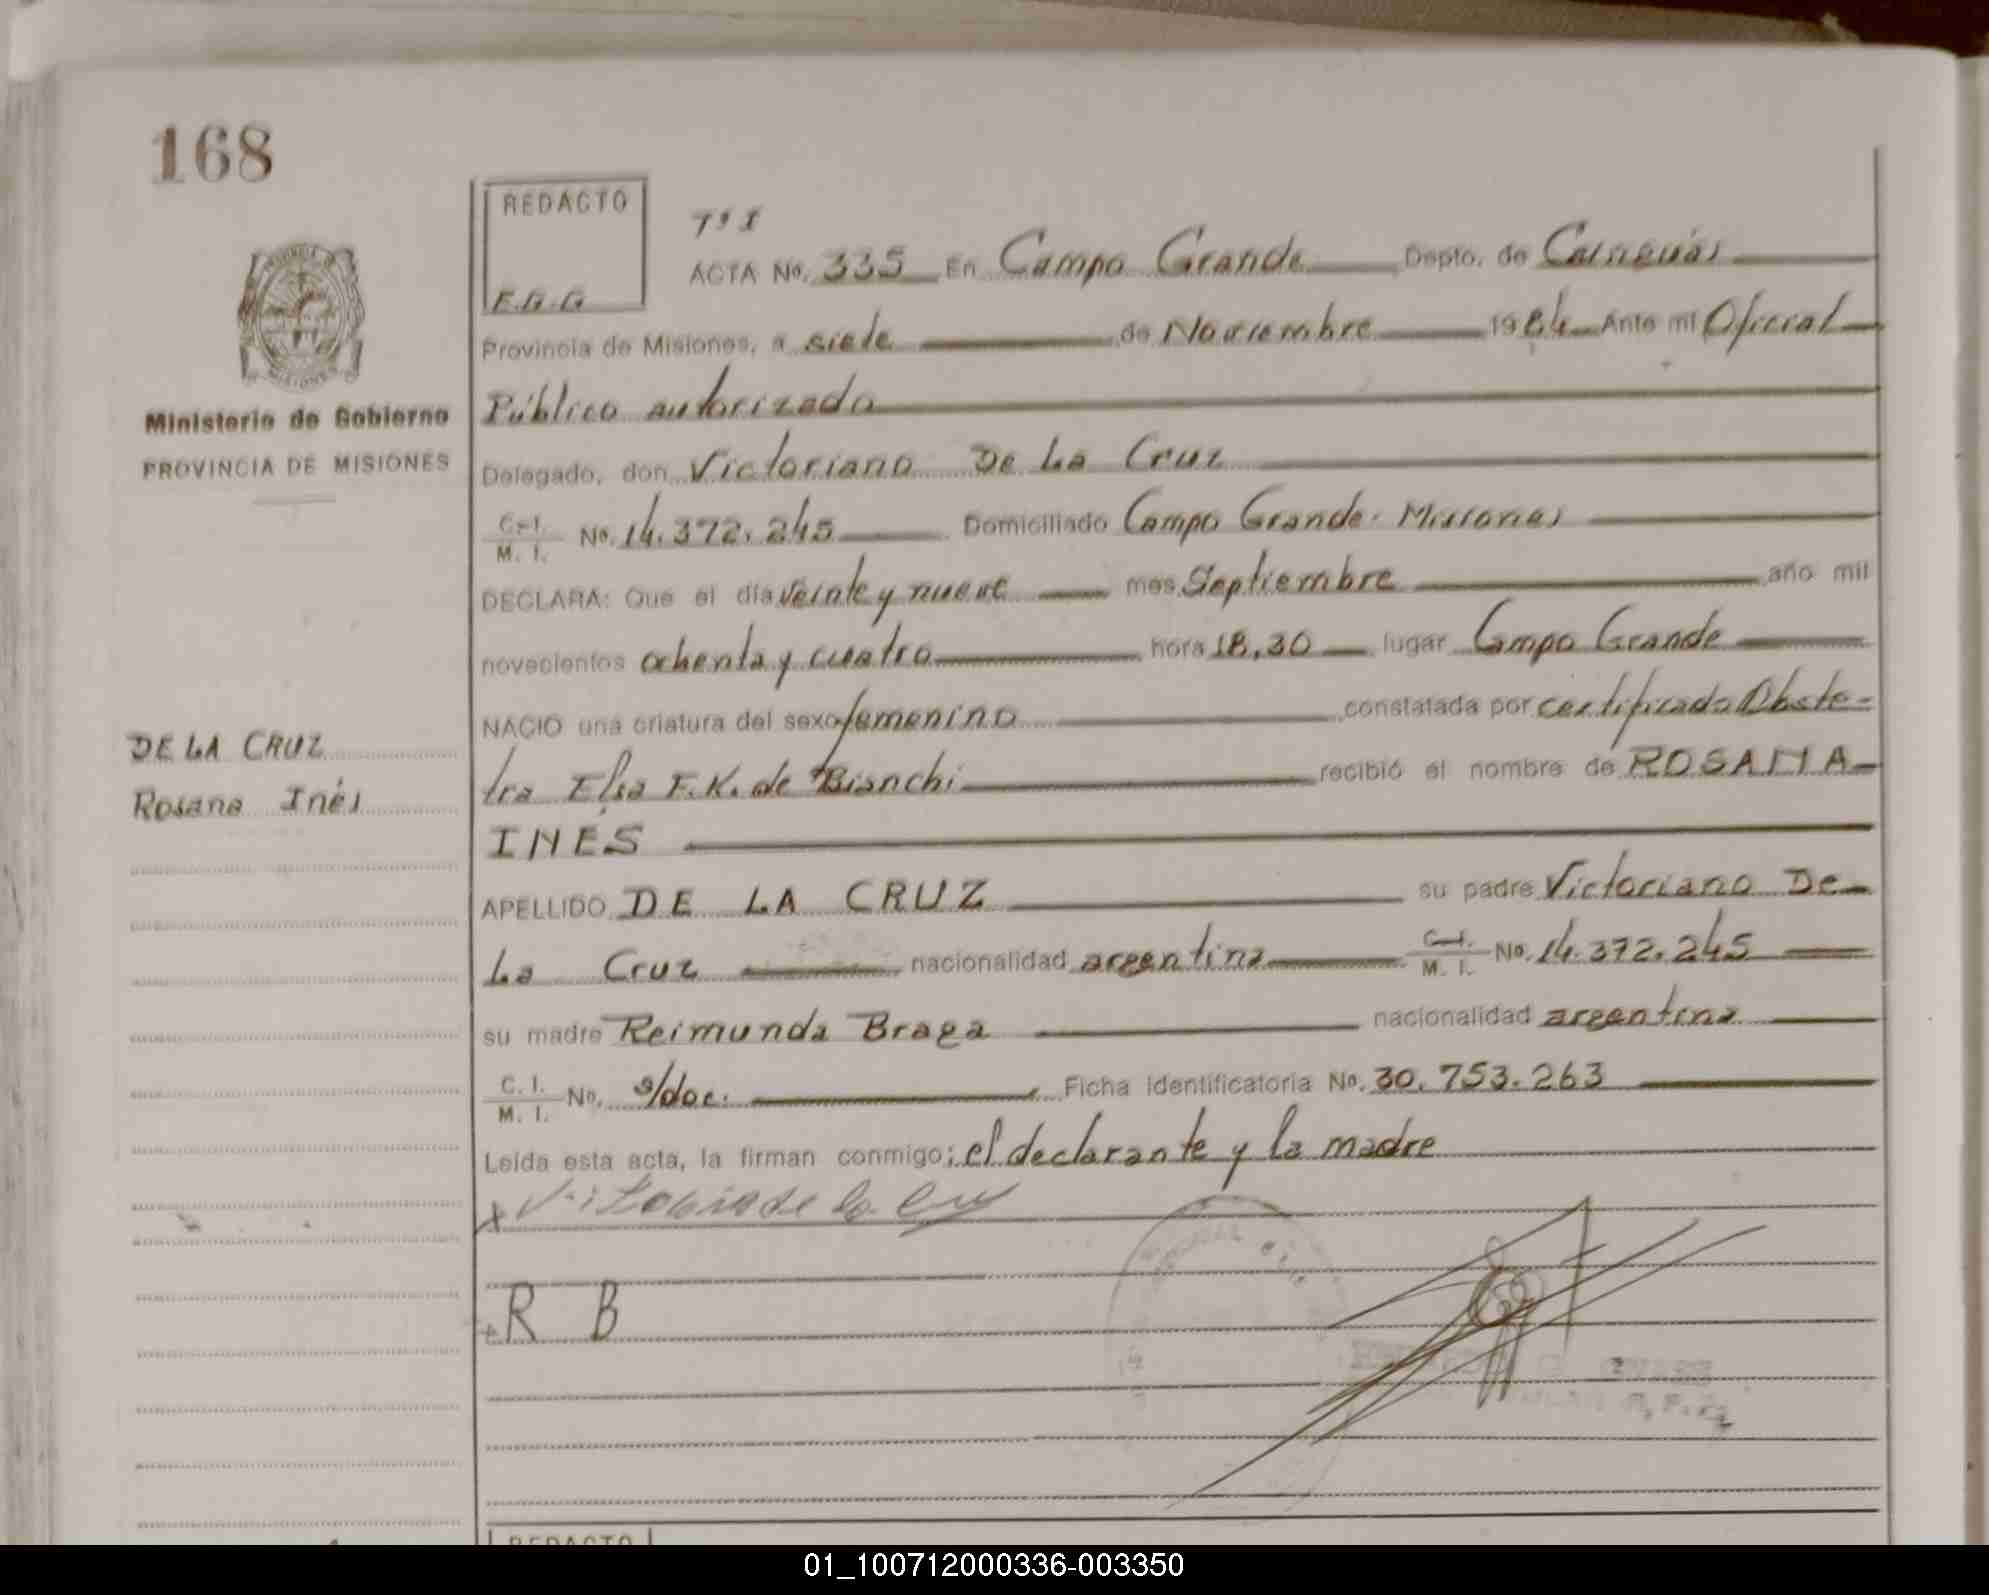 168
REDACTO
E.G.G
Tº I
ACTA No. 335 En Campo Grande Depto. de Cainguás
Provincia de Misiones, a siete de Noviembre 1984 Ante mí Oficial
Público autorizado
Ministerio de Gobierno
PROVINCIA DE MISIONES
Delegado, don Victoriano De La Cruz
C.I. M. I. No. 14.372.245 Domiciliado Campo Grande - Misiones
DECLARA: Que el día veinte y nueve mes Septiembre año mil
novecientos ochenta y cuatro hora 18,30 lugar Campo Grande
NACIO una criatura del sexo femenino constatada por certificado Obste-
tra Elsa F.K. de Bianchi recibió el nombre de ROSANA
INÉS
DE LA CRUZ
Rosana Inés
APELLIDO DE LA CRUZ su padre Victoriano De
La Cruz nacionalidad argentina C.I. M. I. No. 14.372.245
su madre Reimunda Braga nacionalidad argentina
C. I. M. I. No. s/doc. Ficha Identificatoria No. 30.753.263
Leída esta acta, la firman conmigo; el declarante y la madre
R B
REDACTO
01_100712000336-003350